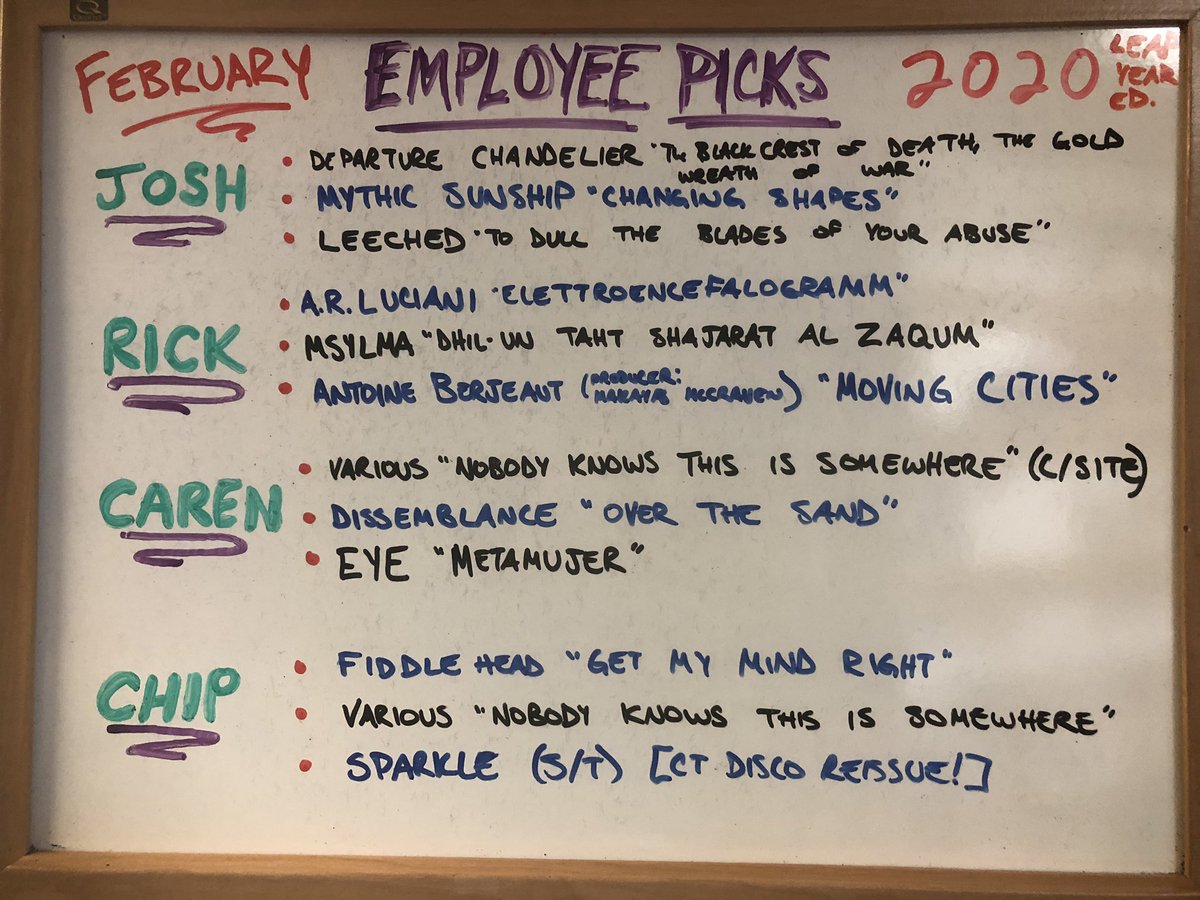 FEBRUARY EMPLOYEE PICKS 2020 LEAP
YEAR
ED.
JOSH
• DEPARTURE CHANDELIER "THE BLACK CREST OF DEATH, THE GOLD
WREATH OF WAR"
• MYTHIC SUNSHIP "CHANGING SHAPES"
• LEECHED "TO DULL THE BLADES OF YOUR ABUSE"
RICK
• A.R. LUCIANI "ELETTROENCEFALOGRAMM"
• MSYLMA "DHIL-UN TAHT SHAJARAT AL ZAQUM"
• ANTOINE BERJEAUT (PRODUCER:
MAKAYA MCCRAVEN) "MOVING CITIES"
CAREN
• VARIOUS "NOBODY KNOWS THIS IS SOMEWHERE" (C/SITE)
• DISSEMBLANCE "OVER THE SAND"
• EYE "METAMUJER"
CHIP
• FIDDLE HEAD "GET MY MIND RIGHT"
• VARIOUS "NOBODY KNOWS THIS IS SOMEWHERE"
• SPARKLE (S/T) [CT DISCO REISSUE!]